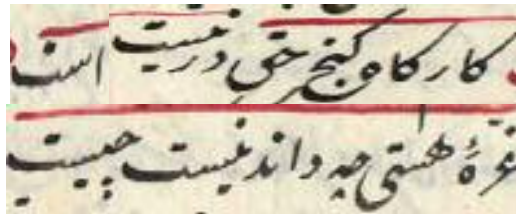 کارکاه کنج حق در نیست است
غرهٔ هستی چه داند نیست چیست